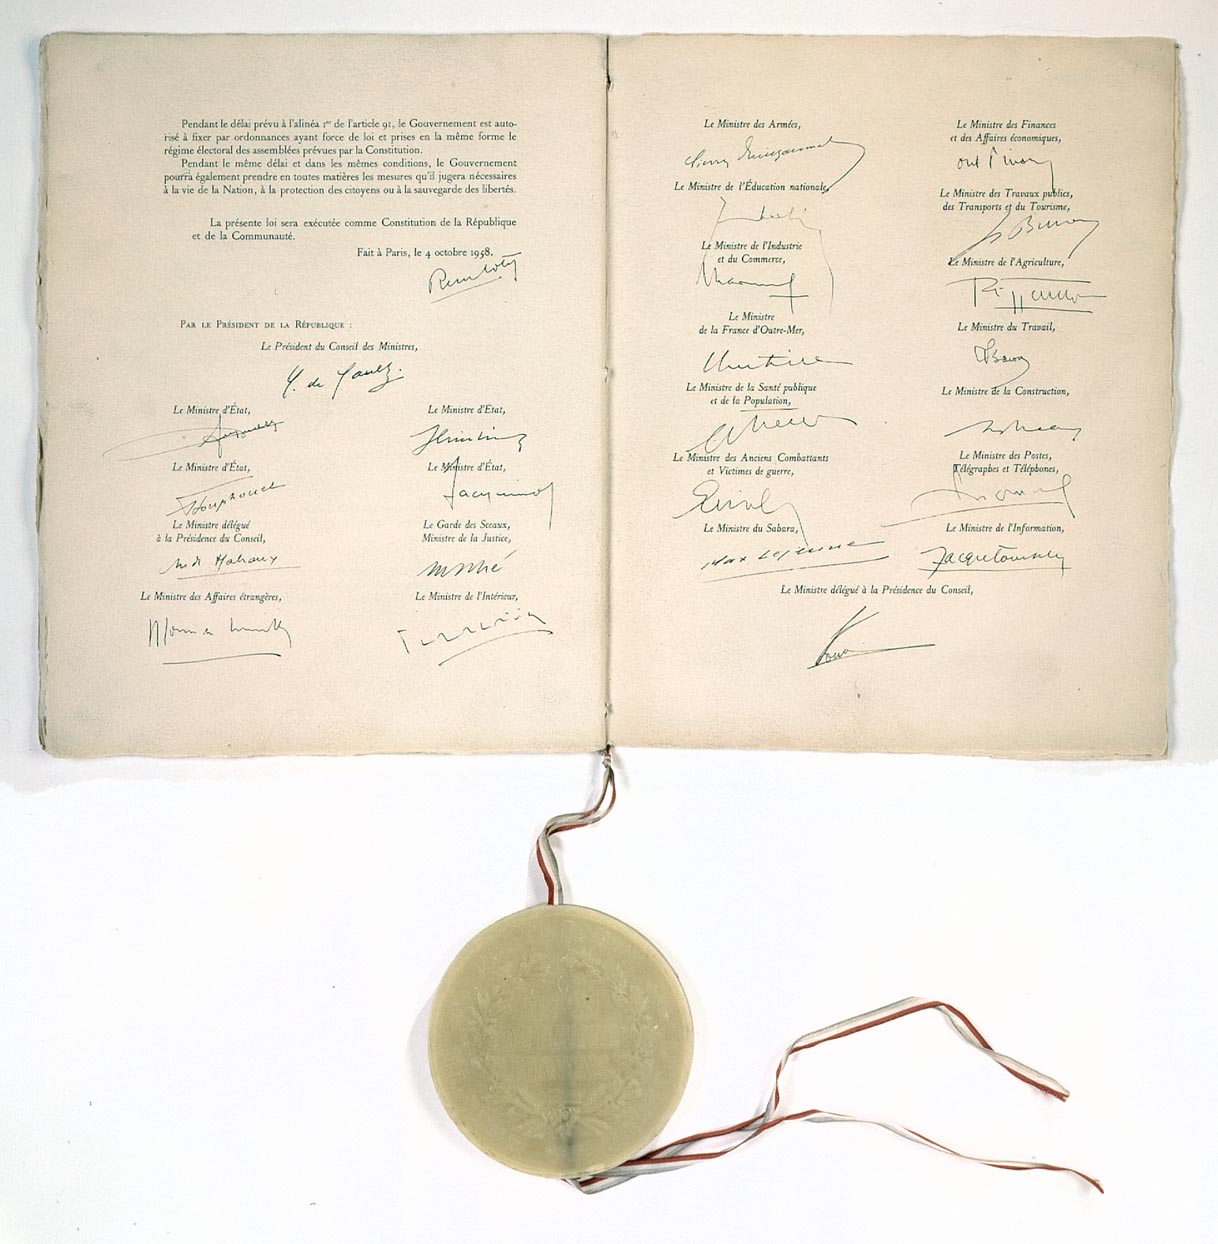 Pendant le délai prévu à l'alinéa 1er de l'article 91, le Gouvernement est auto-
risé à fixer par ordonnances ayant force de loi et prises en la même forme le
régime électoral des assemblées prévues par la Constitution.
Pendant le même délai et dans les mêmes conditions, le Gouvernement
pourra également prendre en toutes matières les mesures qu'il jugera nécessaires
à la vie de la Nation, à la protection des citoyens ou à la sauvegarde des libertés.
La présente loi sera exécutée comme Constitution de la République
et de la Communauté.
Fait à Paris, le 4 octobre 1958.
René Coty
PAR LE PRÉSIDENT DE LA RÉPUBLIQUE :
Le Président du Conseil des Ministres,
C. de Gaulle.
Le Ministre d'État,
Le Ministre d'État,
Le Ministre d'État,
Houphouet
Le Ministre d'État,
Jacquinot
Le Ministre délégué
à la Présidence du Conseil,
Malraux
Le Garde des Sceaux,
Ministre de la Justice,
Le Ministre des Affaires étrangères,
Le Ministre de l'Intérieur,
Le Ministre des Armées,
Le Ministre de l'Éducation nationale,
Le Ministre de l'Industrie
et du Commerce,
Le Ministre
de la France d'Outre-Mer,
Le Ministre de la Santé publique
et de la Population,
Le Ministre des Anciens Combattants
et Victimes de guerre,
Le Ministre du Sahara,
Max Lejeune
Le Ministre des Finances
et des Affaires économiques,
Le Ministre des Travaux publics,
des Transports et du Tourisme,
Le Ministre de l'Agriculture,
Le Ministre du Travail,
Le Ministre de la Construction,
Le Ministre des Postes,
Télégraphes et Téléphones,
Le Ministre de l'Information,
Le Ministre délégué à la Présidence du Conseil,